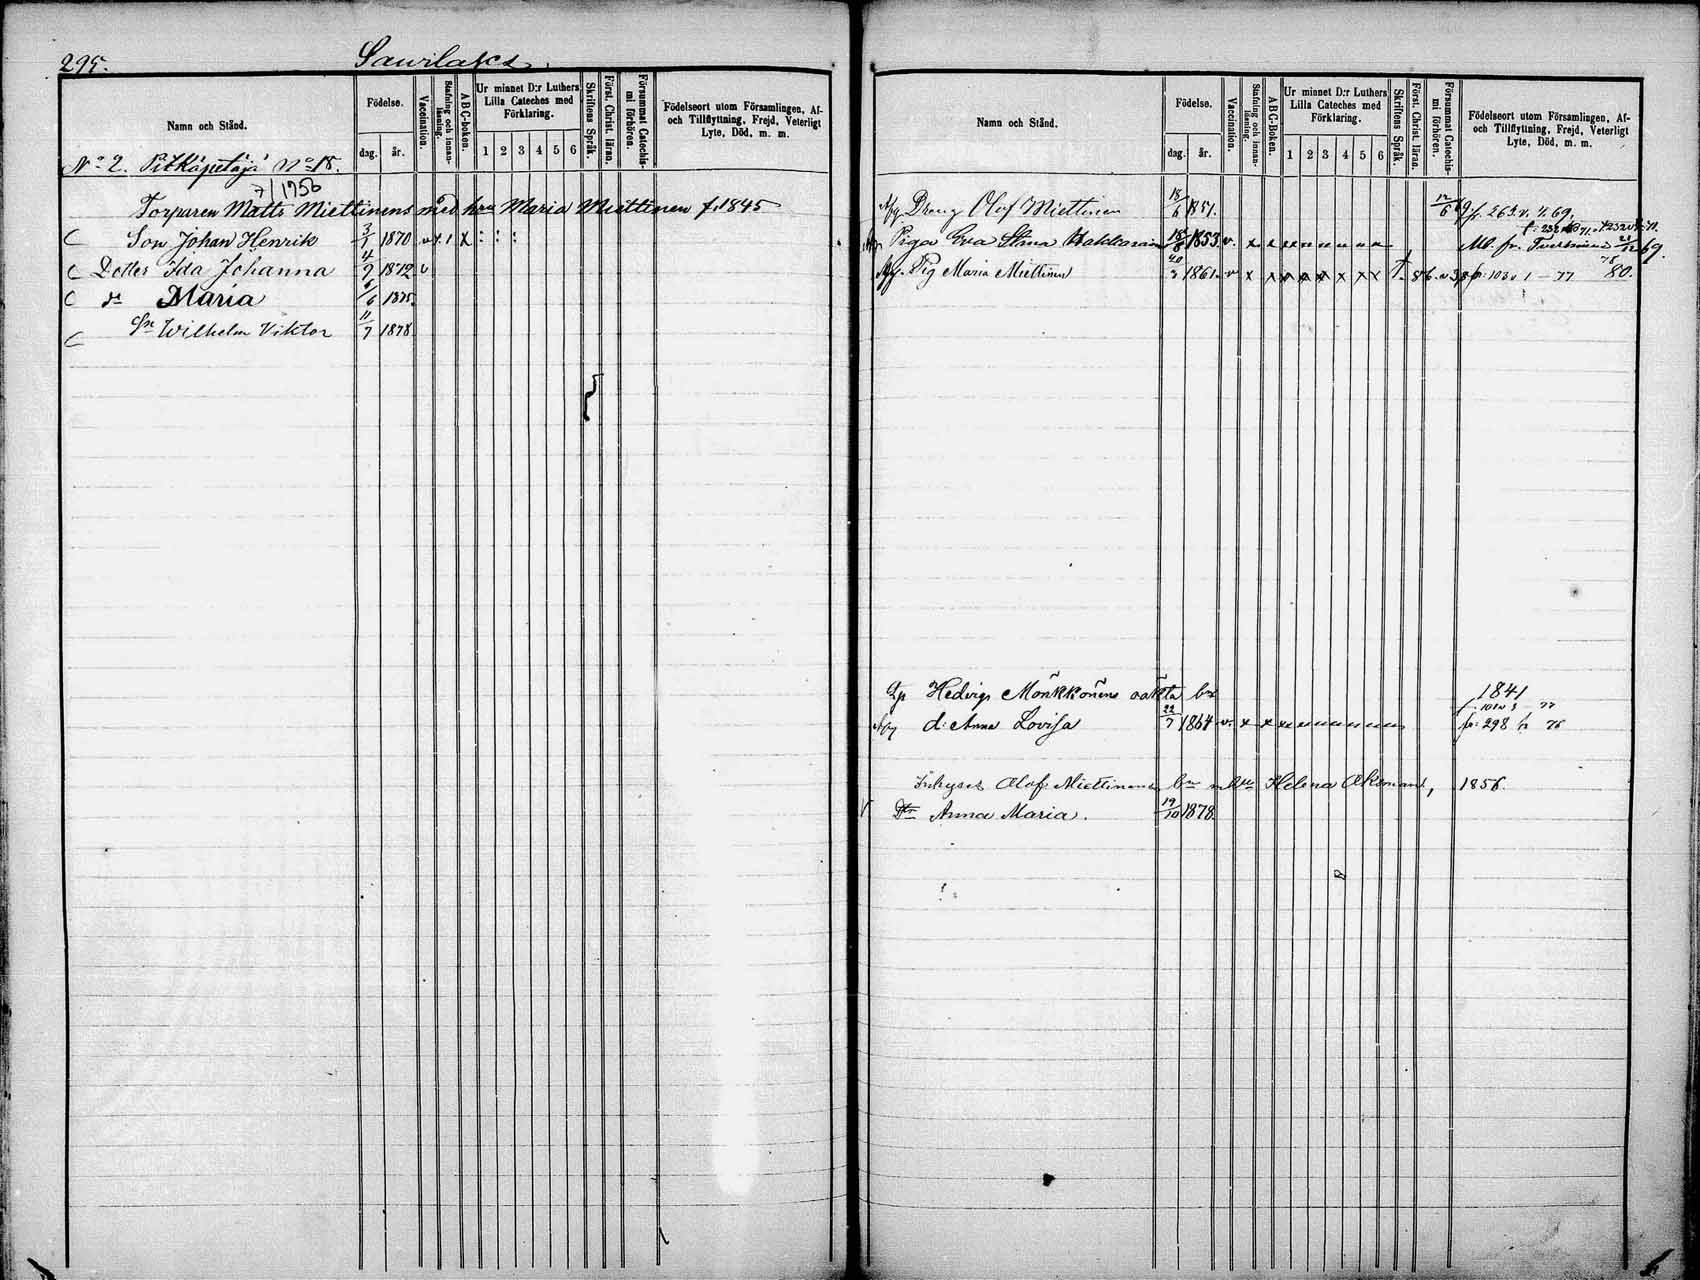 295.
Saurilaks.
Namn och Stånd.
Födelse.
dag. år.
Vaccination.
Stafning och innan-läsning.
ABC-boken.
Ur minnet D:r Luthers Lilla Cateches med Förklaring.
1 2 3 4 5 6
Skriftens Språk.
Först. Christ. läran.
Försummat Catechis-mi förhören.
Födelseort utom Församlingen, Af- och Tillflyttning, Frejd, Veterligt Lyte, Död, m. m.
No 2. Pitkäpetäjä No 18.
7/1956
Torparen Matts Miettinens med hru Maria Miettinen f. 1845
Son Johan Henrik 3/1 1870 v x 1 x : : :
Dotter Ida Johanna 4/9 1872 v
dr Maria 6/6 1875
Sn Wilhelm Viktor 11/7 1878
Namn och Stånd.
Födelse.
dag. år.
Vaccination.
Stafning och innan-läsning.
ABC-Boken.
Ur minnet D:r Luthers Lilla Cateches med Förklaring.
1 2 3 4 5 6
Skriftens Språk.
Först. Christ. läran.
Försummat Catechis-mi förhören.
Födelseort utom Församlingen, Af- och Tillflyttning, Frejd, Veterligt Lyte, Död, m. m.
Afg. Dreng Olof Miettinen 18/6 1851. 12/6 69
Piga Eva Stina Hakkarain 18/8 1853 v. x x x Mb. fr. 69.
Afg. Pig Maria Miettinen 1861 v x x x x x x x x 103 v 1 – 77 80.
Hedvigs Mönkkönens oäkta bn 1841
101 v 3 – 77
Afg d: Anna Lovisa 22/7 1864 v. x x x fr: 298 76
Inhyses Olof Miettinens bn m hu Helena Åkoman, 1856.
V Dtr Anna Maria. 19/10 1878